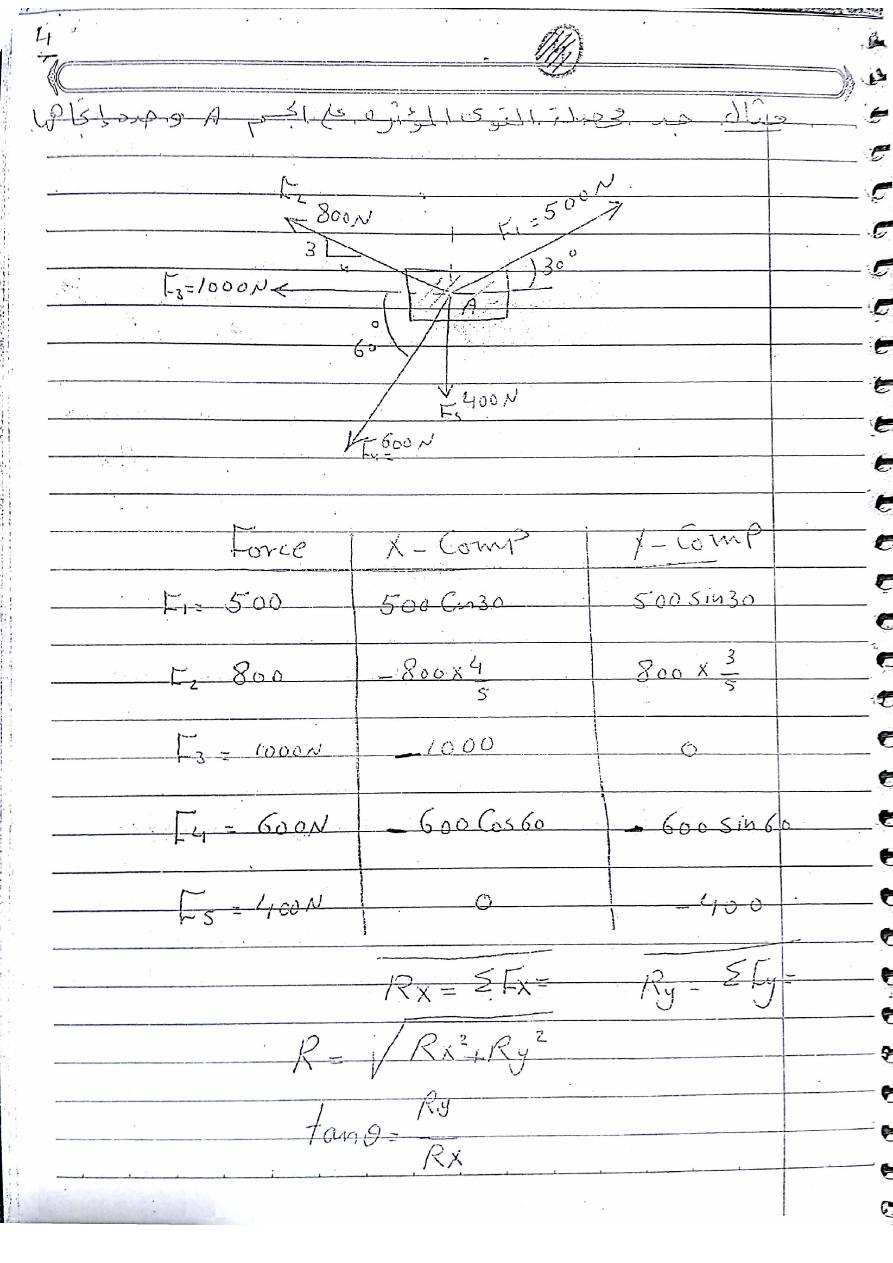 4
مثال جد محصلة القوى المؤثره على الجسم A وحدد إتجاهها
F₂
800N
F₁ = 500N
3
4
30°
F₃=1000N
A
60°
F₅ 400N
F₄= 600N
Force X-Comp Y-Comp
F₁= 500 500 Cos30 500 Sin30
F₂ 800 -800 x 4/5 800 x 3/5
F₃ = 1000N -1000 0
F₄ = 600N - 600 Cos60 - 600 Sin60
F₅ = 400N 0 -400
Rx = ΣFx= Ry = ΣFy=
R = √Rx²+Ry²
tanθ= Ry/Rx